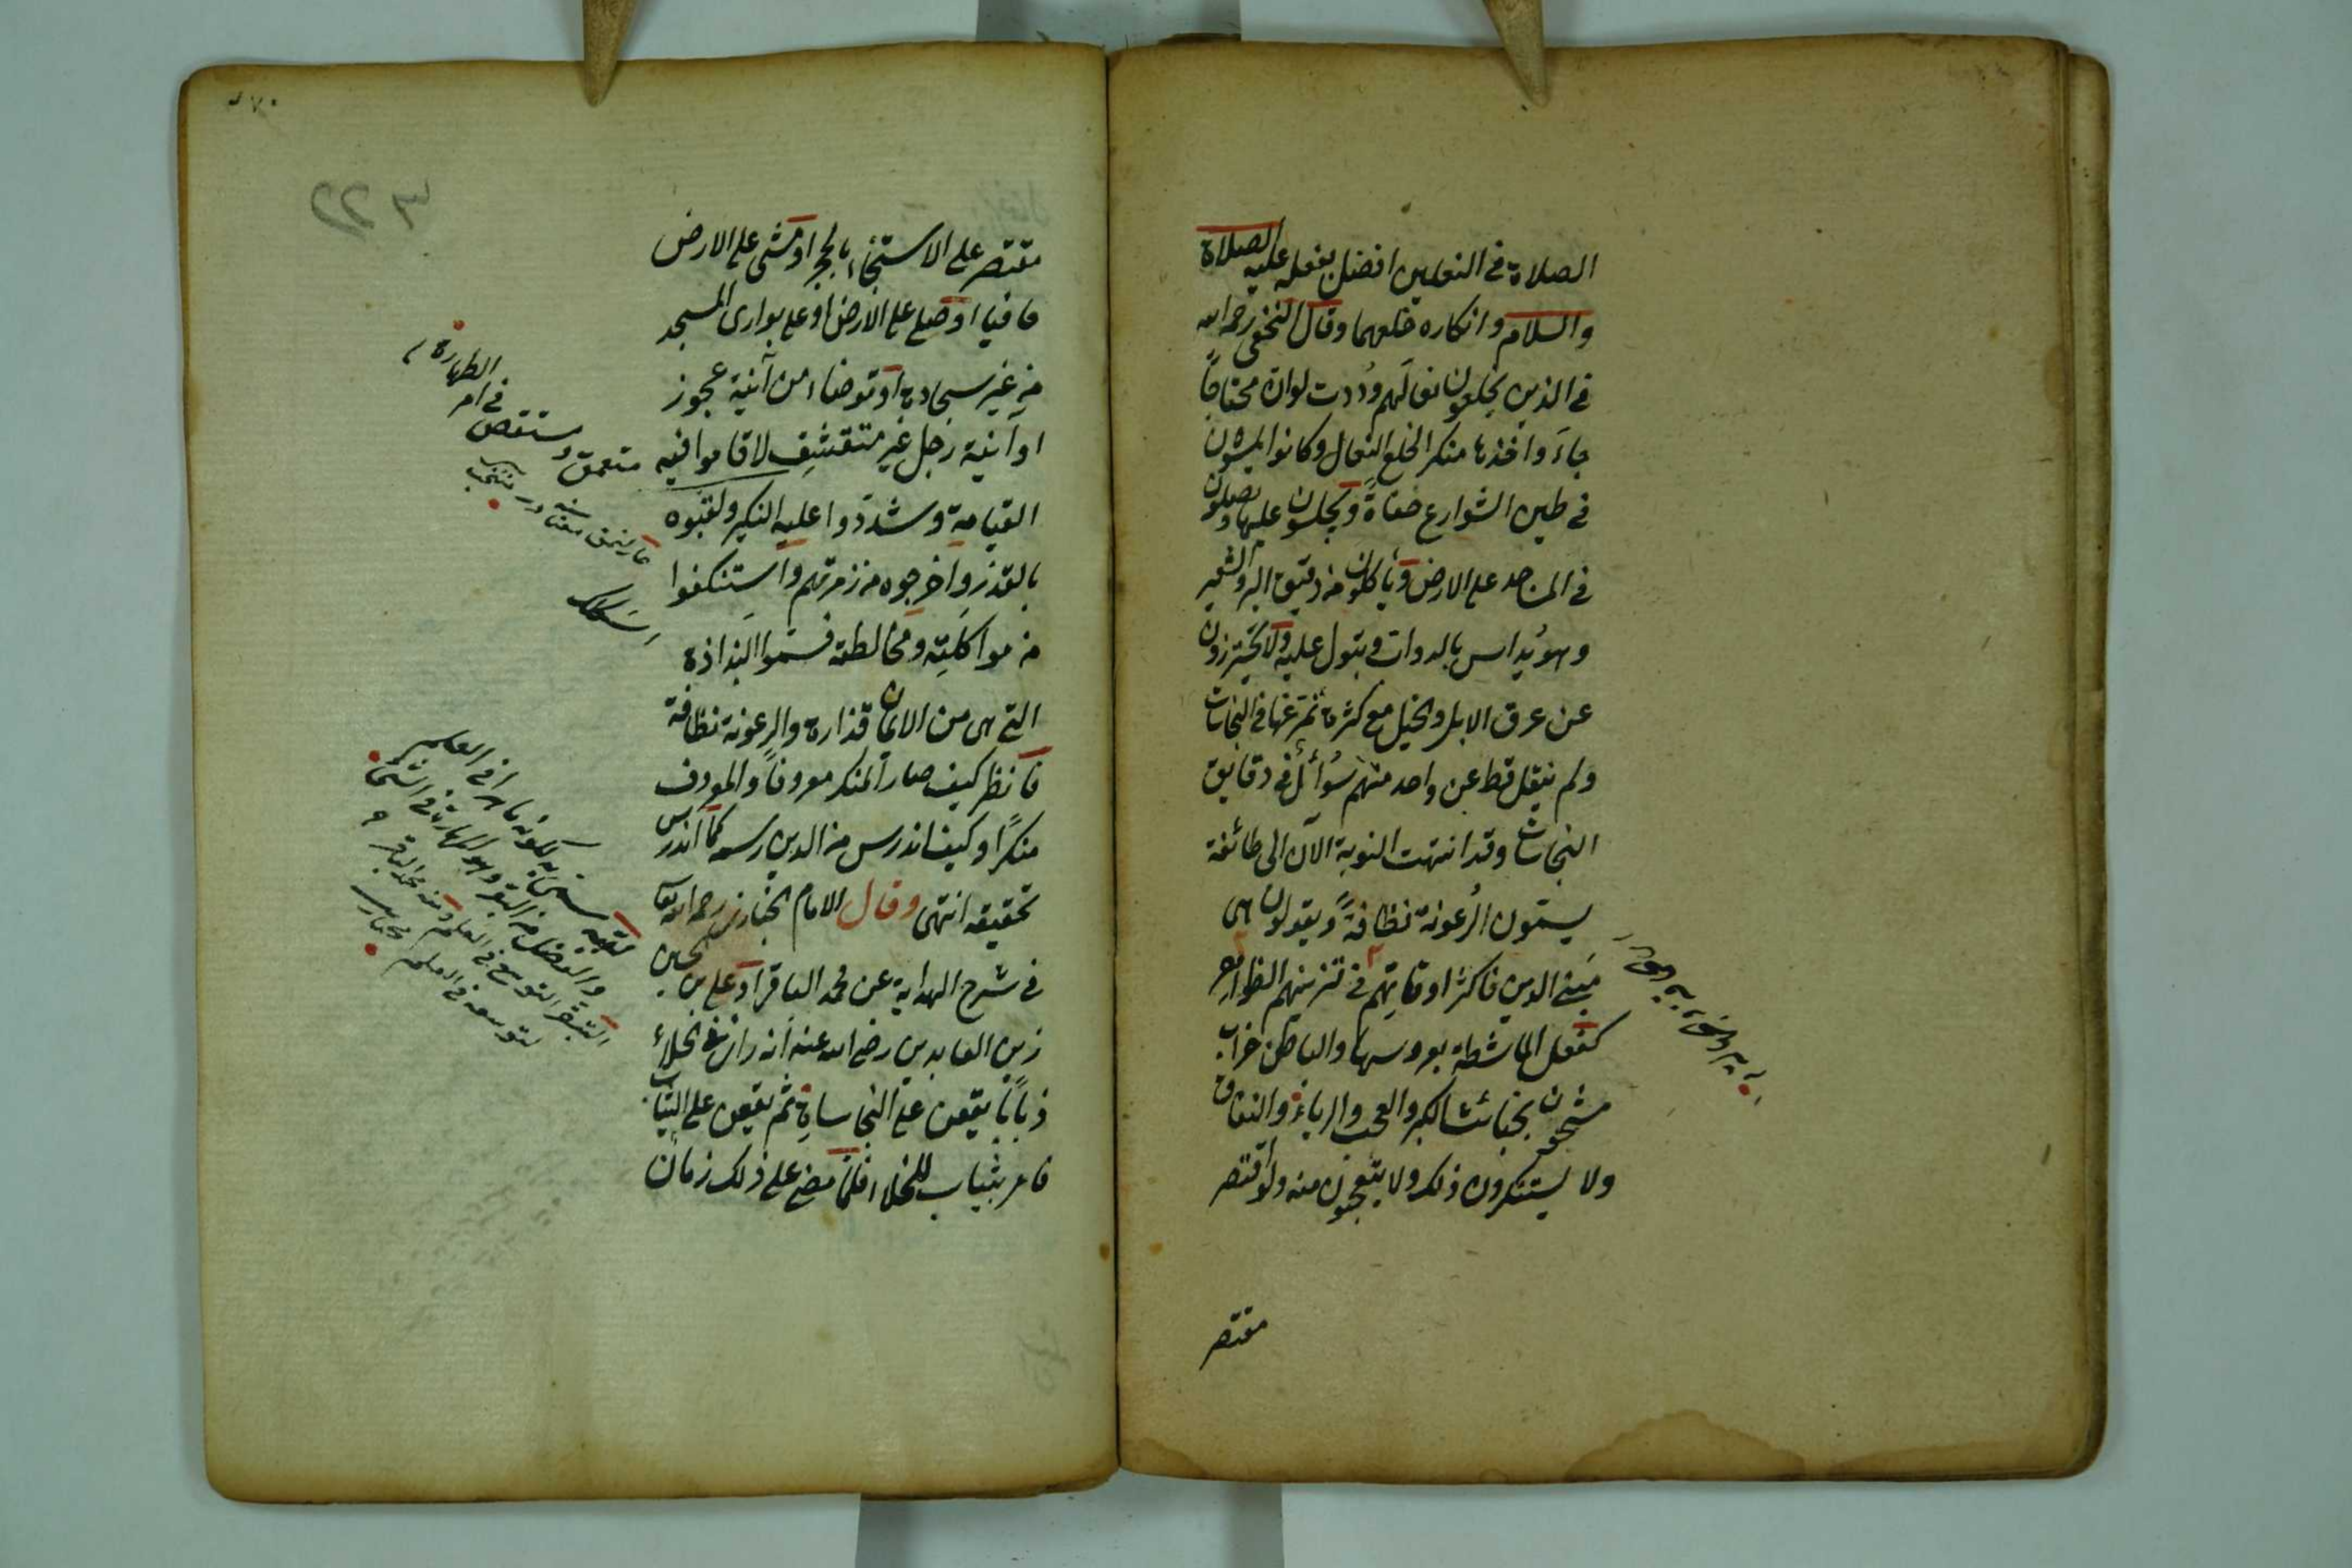 الصلاة في النعلين افضل بفعله عليه الصلاة
والسلام وانكاره خلعهما وقال النخعي رحمه الله
في الذين يخلعون نعالهم وددت لو ان محتاجا
جاء واخذها منكر الخلع النعال وكانوا يمشون
في طين الشوارع حفاة ويجلسون عليها ويصلون
في المساجد على الارض ويأكلون من دقيق البر والشعير
وهو يداس بالدواب وتبول عليه ولا يحترزون
عن عرق الابل والخيل مع كثرة تمرغها في النجاسات
ولم ينقل قط عن واحد منهم سؤال في دقايق
النجاسات وقد انتهت النوبة الآن الى طائفة
يسمون الرعونة نظافة ويقولون هي
مبنى الدين فاكثر اوقاتهم في تزينهم الظواهر
كفعل الماشطة بعروسها والباطن خراب
مشحون بخبائث الكبر والعجب والرياء والنفاق
ولا يستنكرون ذلك ولا يتعجبون منه ولو اقتصر
مقتصر
مقتصر على الاستنجاء بالحجر او مشى على الارض
حافيا او صلى على الارض او على بوارى المسجد
من غير سجادة او توضاء من آنية عجوز
او آنية رجل غير متقشف لاقاموا فيه
القيامة وشددوا عليه النكير ولقبوه
بالقذر واخرجوه من زمرتهم واستنكفوا
من مواكلته ومخالطته فسموا البذاذة
التي هي من الايمان قذارة والرعونة نظافة
فانظر كيف صار المنكر معروفا والمعروف
منكرا وكيف اندرس من الدين رسمه كما اندرس
تحقيقه انتهى وقال الامام الخبازي رحمه الله تعا
في شرح الهداية عن محمد الباقر او على بن الحسين
زين العابدين رضى الله عنه انه راى في الخلاء
ذبابا يقعن على النجاسات ثم يقعن على الثياب
فامر بثياب للخلاء فلما مضى على ذلك زمان
متعمق ومستقص
في امر
الطهارة
لقبه
به لكونه ماهرا في العلم
التبقر التوسع في العلم ومنه محمد الباقر
لتوسعه في العلم مختار
٢٢٣